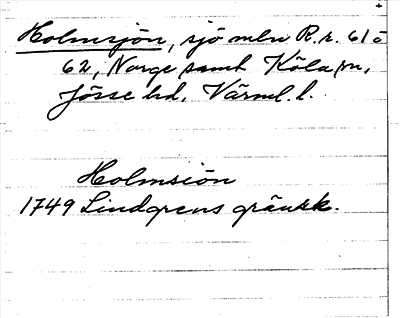 Holmsjön, sjö mln R.r. 61 o
62, Norge samt Köla sn,
Jösse hd, Värml. l.
Holmsiön
1749 Lindgrens gränsk.